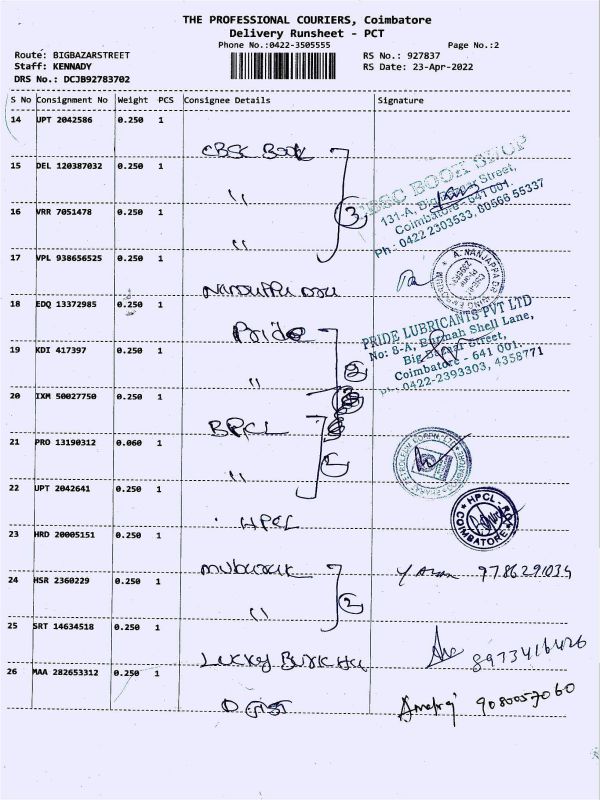 THE PROFESSIONAL COURIERS, Coimbatore
Delivery Runsheet - PCT
Phone No.:0422-3505555
Page No.:2
Route: BIGBAZARSTREET
RS No.: 927837
Staff: KENNADY
RS Date: 23-Apr-2022
DRS No.: DCJB92783702
S No Consignment No Weight PCS Consignee Details Signature
14 UPT 2042586 0.250 1
CBSC Book
15 DEL 120387032 0.250 1
"
16 VRR 7051478 0.250 1
3
"
CBSC BOOK SHOP
131-A, Big Bazaar Street,
Coimbatore - 641 001.
Ph : 0422 2303533, 80566 55337
17 VPL 938656525 0.250 1
18 EDQ 13372985 0.250 1
Pride
19 KDI 417397 0.250 1
"
2
PRIDE LUBRICANTS PVT LTD
No: 8-A, Burmah Shell Lane,
Big Bazaar Street,
Coimbatore - 641 001.
Ph: 0422-2393303, 4358771
20 IXM 50027750 0.250 1
BPCL
21 PRO 13190312 0.060 1
"
2
22 UPT 2042641 0.250 1
HPCL
HPCL - RO
COIMBATORE
23 HRD 20005151 0.250 1
mubarak
9786291034
24 HSR 2360229 0.250 1
"
2
25 SRT 14634518 0.250 1
Lucky
8973416426
26 MAA 282653312 0.250 1
9080057060